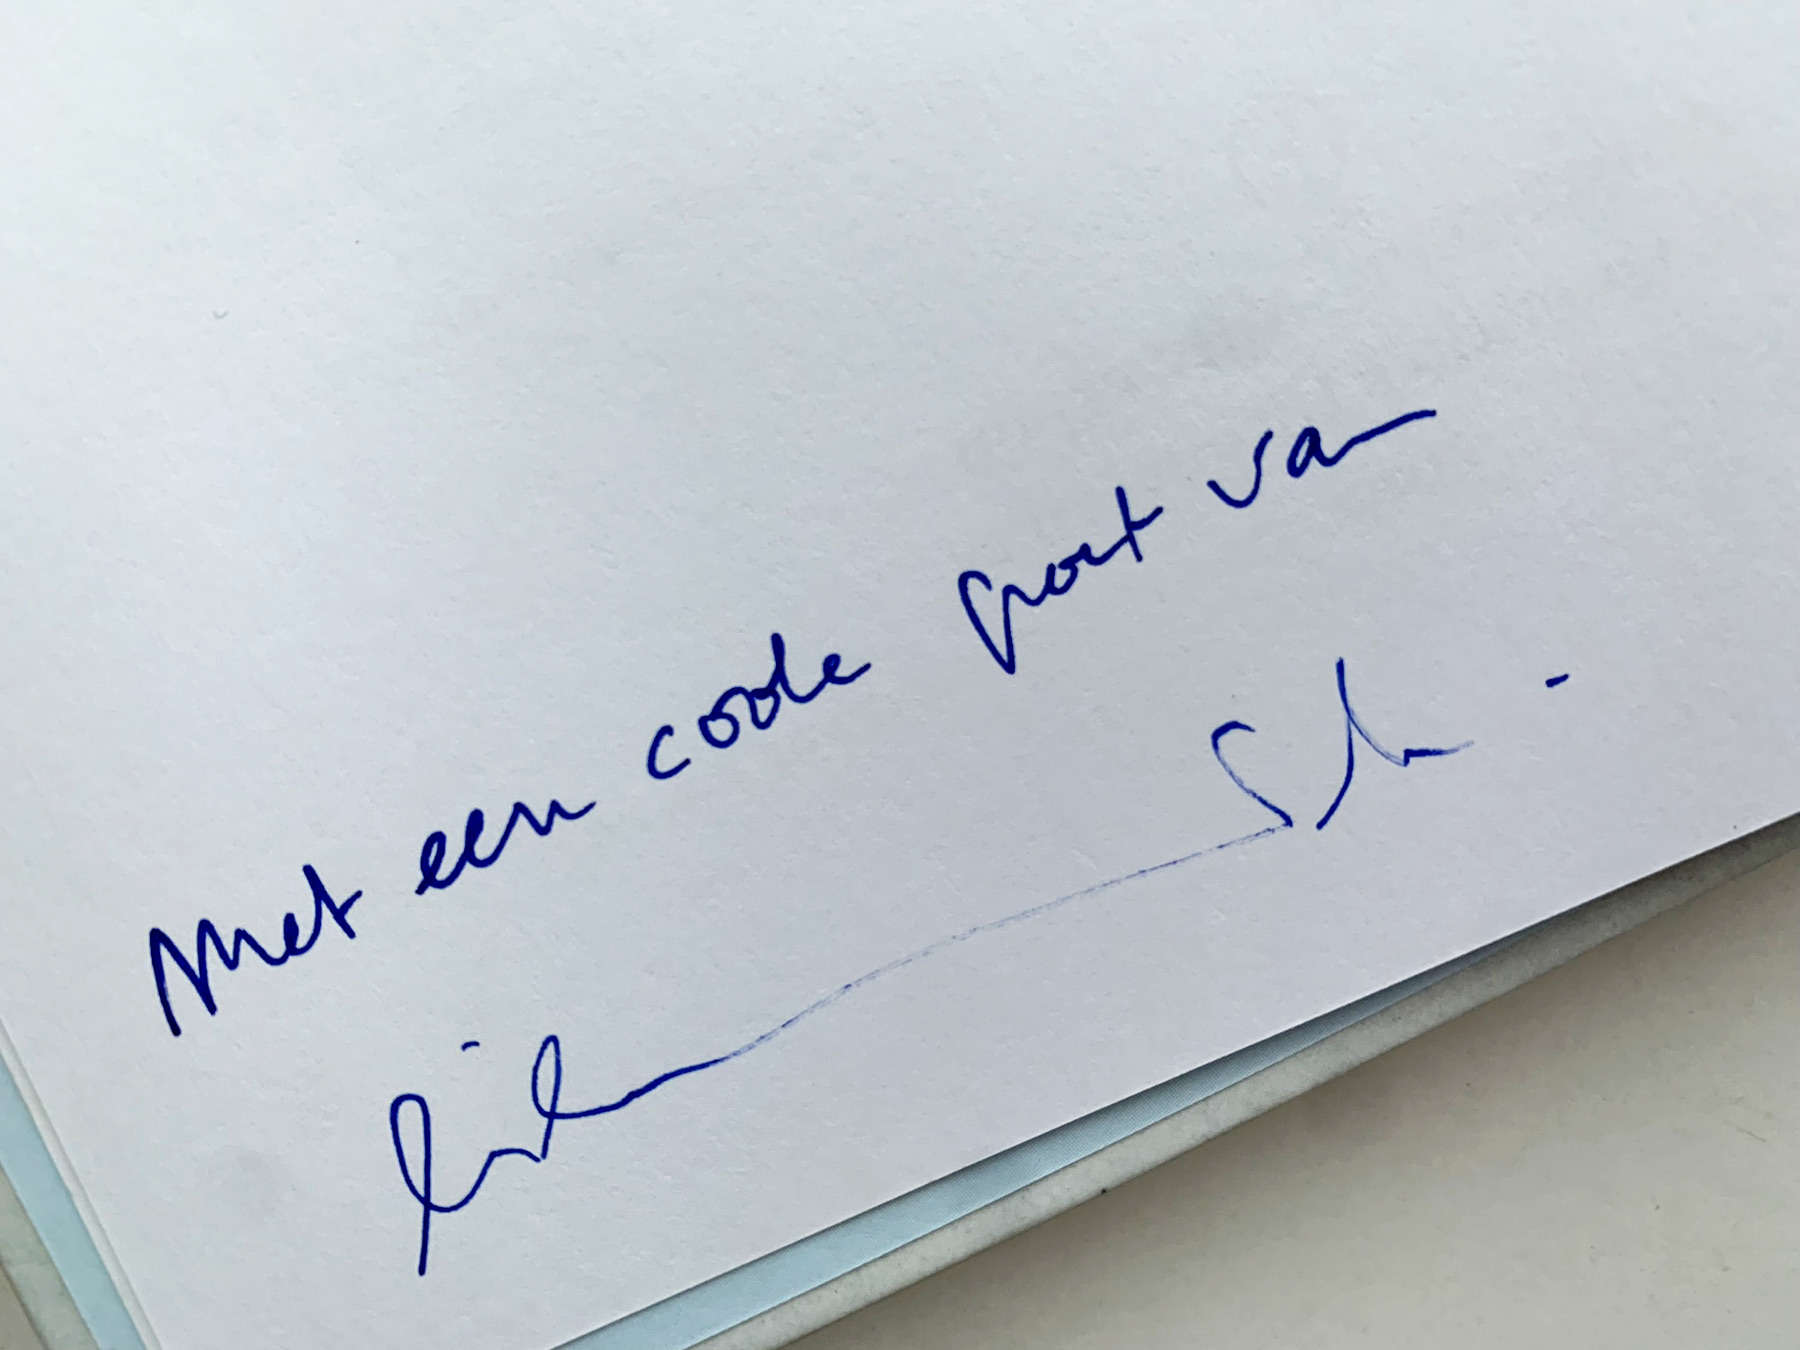 Met een coole groet van